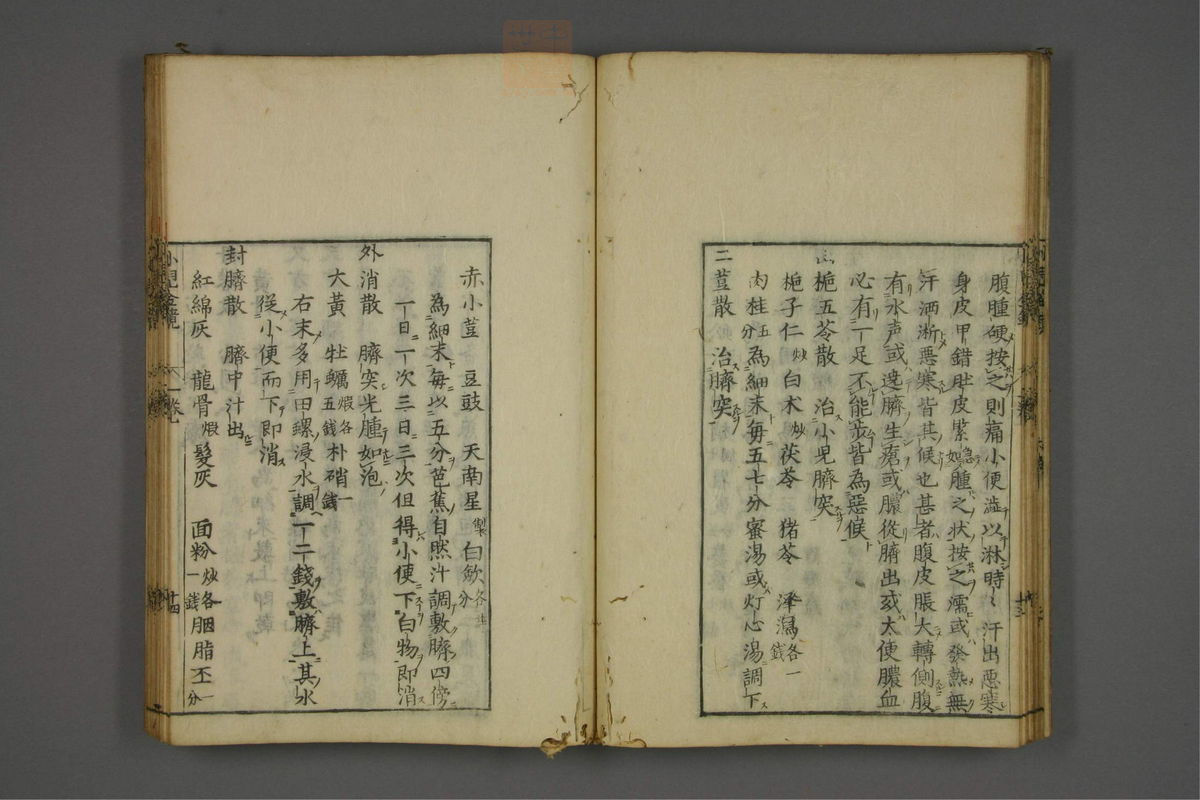 腹腫硬按之則痛小便澁以淋時〻汗出悪寒
身皮甲錯肚皮緊急如腫之状按之濡或發熱無
汗洒淅悪寒皆其候也甚者腹皮脹大轉側腹
有水声或遶臍生瘡或膿從臍出或大便膿血
必有一足不能歩皆為惡候
梔五苓散 治小児臍突
梔子仁炒 白术炒 茯苓 猪苓 澤瀉各一錢
肉桂五分 為細末毎五七分蜜湯或灯心湯調下
二荳散 治臍突
赤小荳 豆豉 天南星製 白歛各
為細末毎以五分芭蕉自然汁調敷臍四傍
一日一次三日三次但得小便下白物即消
外消散 臍突光腫如泡
大黄 牡蠣煆各五錢 朴硝一錢
右末多用田螺浸水調一二錢敷臍上其水
從小便而下即消
封臍散 臍中汁出
紅綿灰 龍骨煆 髪灰 面粉炒各一錢 胭脂丕一分
小児
卷
十四